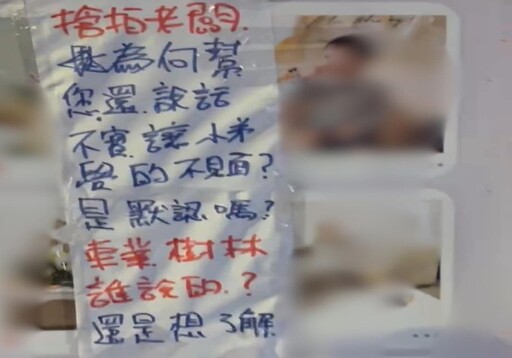 老闆
為何幫
您還說話
不實讓小弟
的不見面?
是默認嗎?
車業樹林
誰說的?
還是想了解